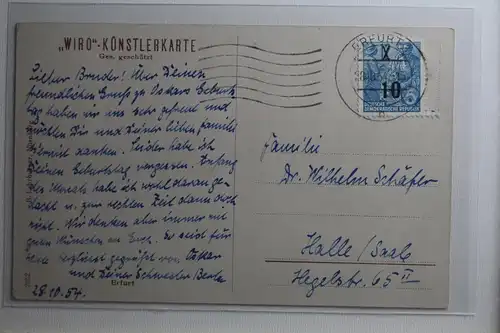 „WIRO"-KÜNSTLERKARTE
Ges. geschützt
ERFURT
X
10
DEUTSCHE
DEMOKRATISCHE REPUBLIK
Lieber Bruder! Über Deinen
freundlichen Gruß zu Oskars Geburts-
tag haben wir uns sehr gefreut und
möchten Dir und Deiner lieben Familie
hiermit danken. Leider habe ich
Deinen Geburtstag vergessen. Anfang
des Monats habe ich wohl daran ge-
dacht u. zur rechten Zeit dann doch
nicht. Wir denken aber immer mit
guten Wünschen an Euch. So seid für
heute herzlichst gegrüßt von Oskar
und Deiner Schwester Berta
28.10.54.
Erfurt
Familie
Dr. Wilhelm Schäfer
Halle/Saale
Hegelstr. 65 II